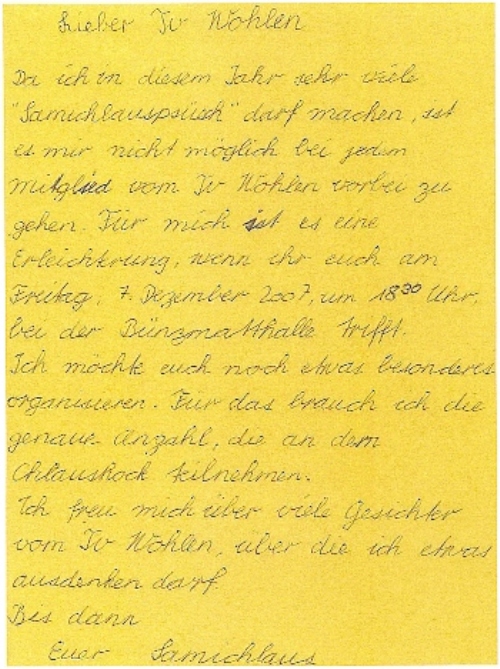 Lieber Tv Wohlen
Da ich in diesem Jahr sehr viele
"Samichlauspsüch" darf machen, ist
es mir nicht möglich bei jedem
mitglied vom Tv Wohlen vorbei zu
gehen. Für mich ist es eine
Erleichterung, wenn ihr euch am
Freitag, 7. Dezember 2007, um 18³⁰ Uhr,
bei der Bünzmatthalle trifft.
Ich möchte euch noch etwas besonderes
organisieren. Für das brauch ich die
genaue Anzahl, die an dem
Chlaushock teilnehmen.
Ich freu mich über viele Gesichter
vom Tv Wohlen, über die ich etwas
ausdenken darf.
Bis dann
Euer Samichlaus